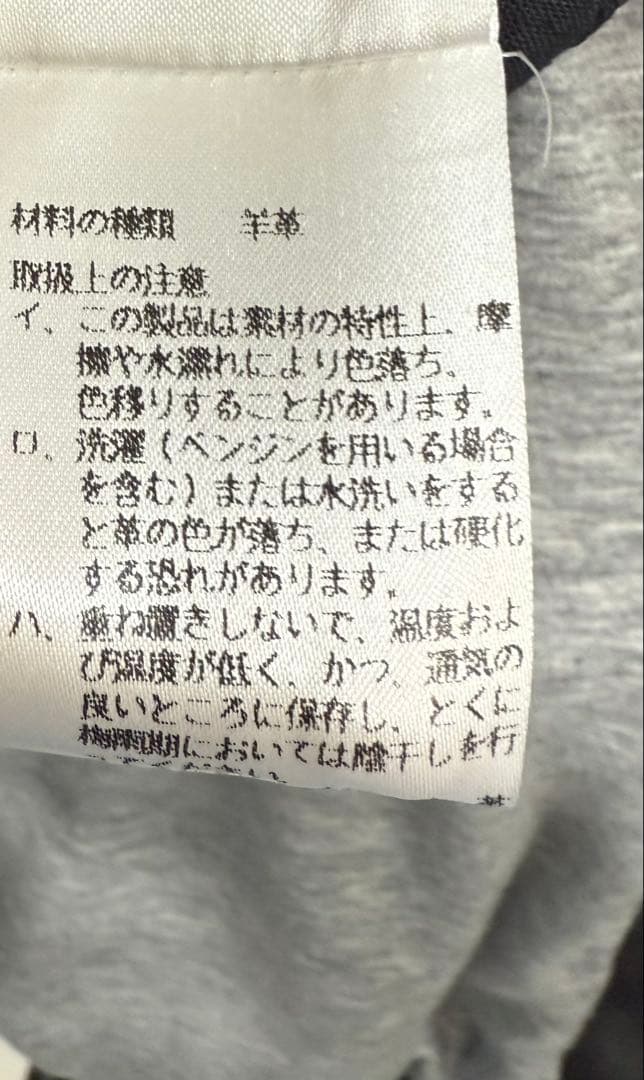 材料の種類　　羊革
取扱上の注意
イ、この製品は素材の特性上、摩
擦や水濡れにより色落ち、
色移りすることがあります。
ロ、洗濯（ベンジンを用いる場合
を含む）または水洗いをする
と革の色が落ち、または硬化
する恐れがあります。
ハ、重ね置きしないで、温度およ
び湿度が低く、かつ、通気の
良いところに保存し、とくに
梅雨期においては陰干しを行